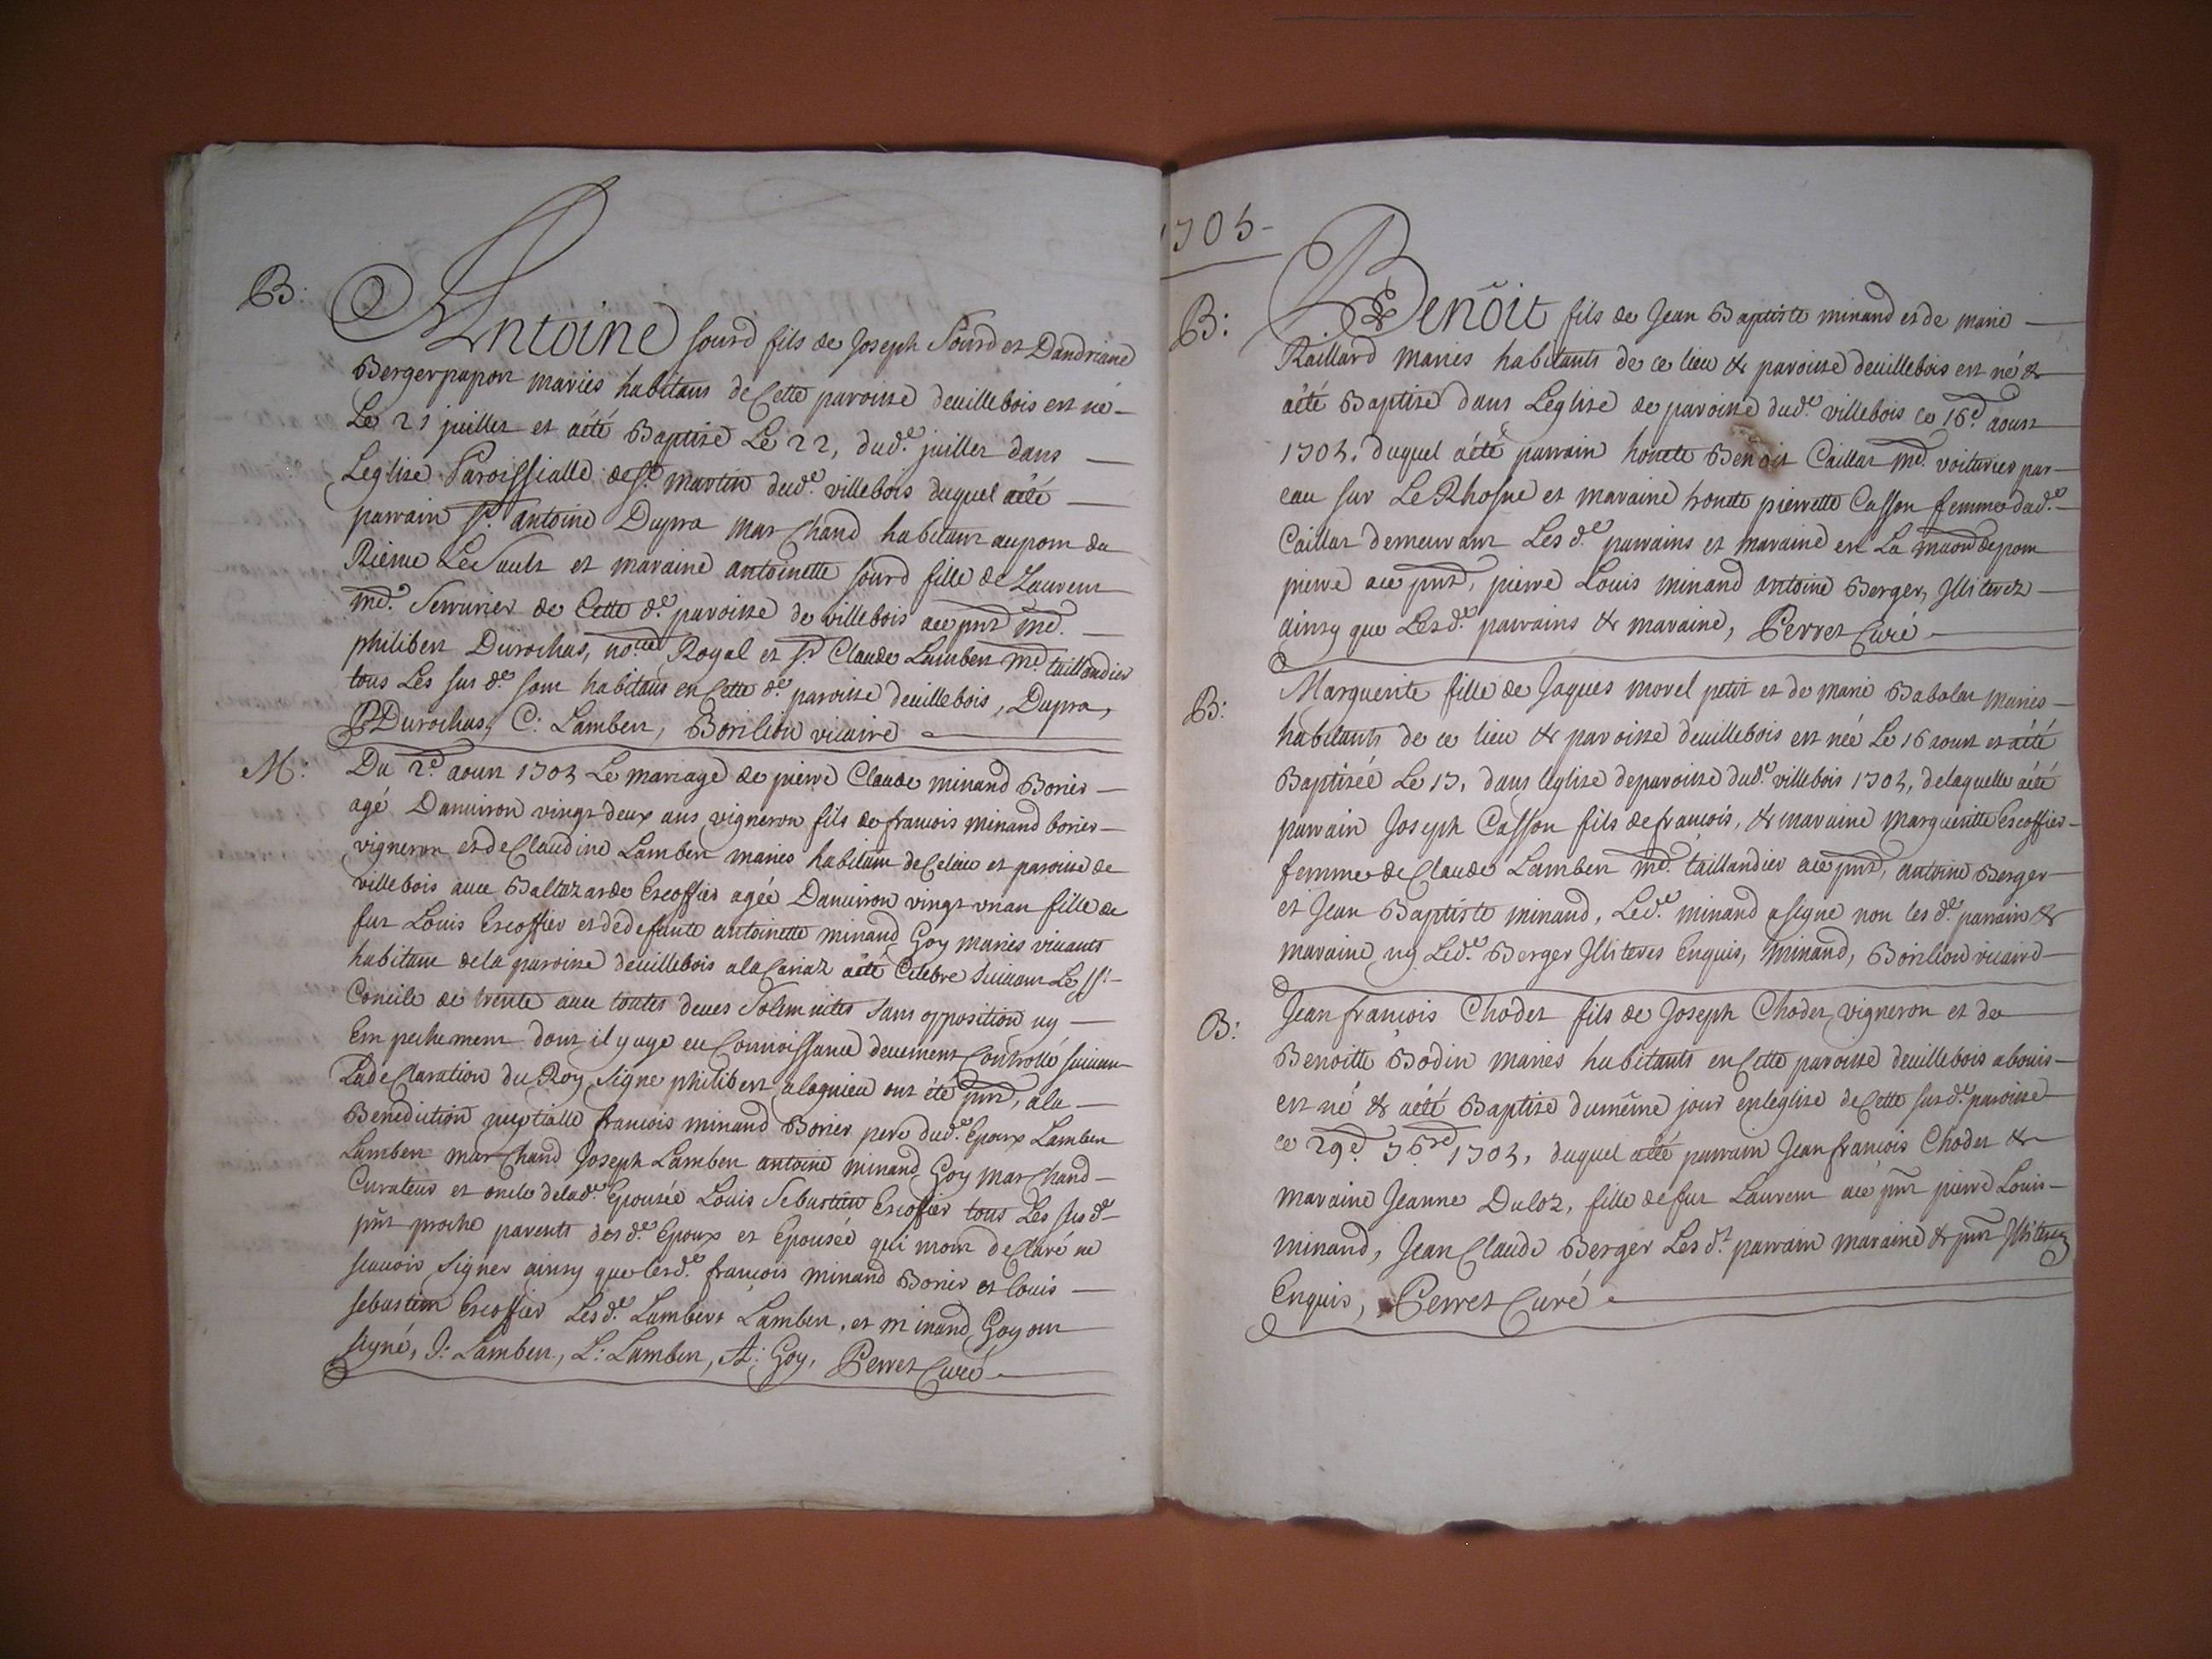 B:
Antoine sourd fils de Joseph Sourd et Dandriane
Berger papon mariés habitans de Cette paroisse devillebois est né
Le 21 juillet et aété Baptisé Le 22, dud.e juillet dans
Leglise Paroissialle de St martin dud.e villebois duquel aété
parrain Sr. antoine Dupra marChand habitant au pont du
Le Sault et maraine antoinette sourd fille de Laurent
md. Serrurier de Cette d.e paroisse de villebois ace pnt md.
philibert Durochas, no.re Royal et Sr Claude Lambert md taillandier
tous Les sus d.e sont habitans en Cette d.e paroisse devillebois, Dupra,
PDurochas, C: Lambert, Borilion vicaire
M:
Du 2d aoust 1705 Le mariage de pierre Claude minand Borier
agé Danviron vingt deux ans vigneron fils de francois minand borier
vigneron et de Claudine Lambert mariés habitans de Celieu et paroisse de
villebois avec Baltazarde Escoffier agée Danviron vingt un an fille de
fut Louis Escoffier et de defunte antoinette minand Goy mariés vivants
habitans dela paroisse devillebois ala aété Celebre suivant Le
Concile de trente avec toutes deues Solemnites sans opposition ny
Em pechement dont il y aye eu Connoissance deuement Controllé suivant
La deClaration du Roy Signe philibert alagnieu ont été pnt, ala
Benediction nuptialle francois minand Borier pere dud.e Epoux Lambert
Lambert marChand Joseph Lambert antoine minand Goy marChand
Curateur et oncle delad.e Epousée Louis Sebastien Escoffier tous Les sus d.e
pnt proche parents des d.e Epoux et Epousée qui mont deClaré ne
scavoir signer ainsy que lesd.e francois minand Borier et louis
sebastien Escoffier Les d.e Lambert Lambert, et minand Goy ont
signé, J: Lambert, L: Lambert, A: Goy, Perret Curé
1705
B:
Benoit fils de Jean Baptiste minand et de marie
Raillard mariés habitants de ce lieu & paroisse devillebois est né &
aété Baptisé dans Leglise de paroisse dud.e villebois ce 16e aoust
1705, duquel aété parrain honete Benoit Caillat md. voiturier par
eau sur Le Rhosne et maraine honete pierrette Casson femme dud.e
Caillat demeurant Les d.e parrains et maraine en La maison de pont
pierre ace pnt, pierre Louis minand antoine Berger, Illiterez
ainsy que Les d.e parrains & maraine, Perret Curé
B:
Marguerite fille de Jaques morel petit et de marie Babolat mariés
habitants de ce lieu & paroisse devillebois est née Le 16 aoust et aété
Baptisée Le 17, dans leglise deparoisse dud.e villebois 1705, delaquelle aété
parrain Joseph Casson fils defrancois, & maraine marguerite Escoffier
femme de Claude Lambert md. taillandier ace pnt, antoine Berger
et Jean Baptiste minand, Led.e minand a signe non les d.e parrain &
maraine ny Led.e Berger Illiteres Enquis, minand, Borilion vicaire
B:
Jean francois Chodet fils de Joseph Chodet vigneron et de
Benoitte Bodin mariés habitants en Cette paroisse devillebois abouis
est né & aété Baptisé dumême jour enleglise de Cette susd.e paroisse
ce 29e 7bre 1705, duquel aété parrain Jean francois Chodet &
maraine Jeanne Duloz, fille de fut Laurent ace pnt pierre Louis
minand, Jean Claude Berger Les d.t parrain maraine & pnt Illiterez
Enquis, Perret Curé